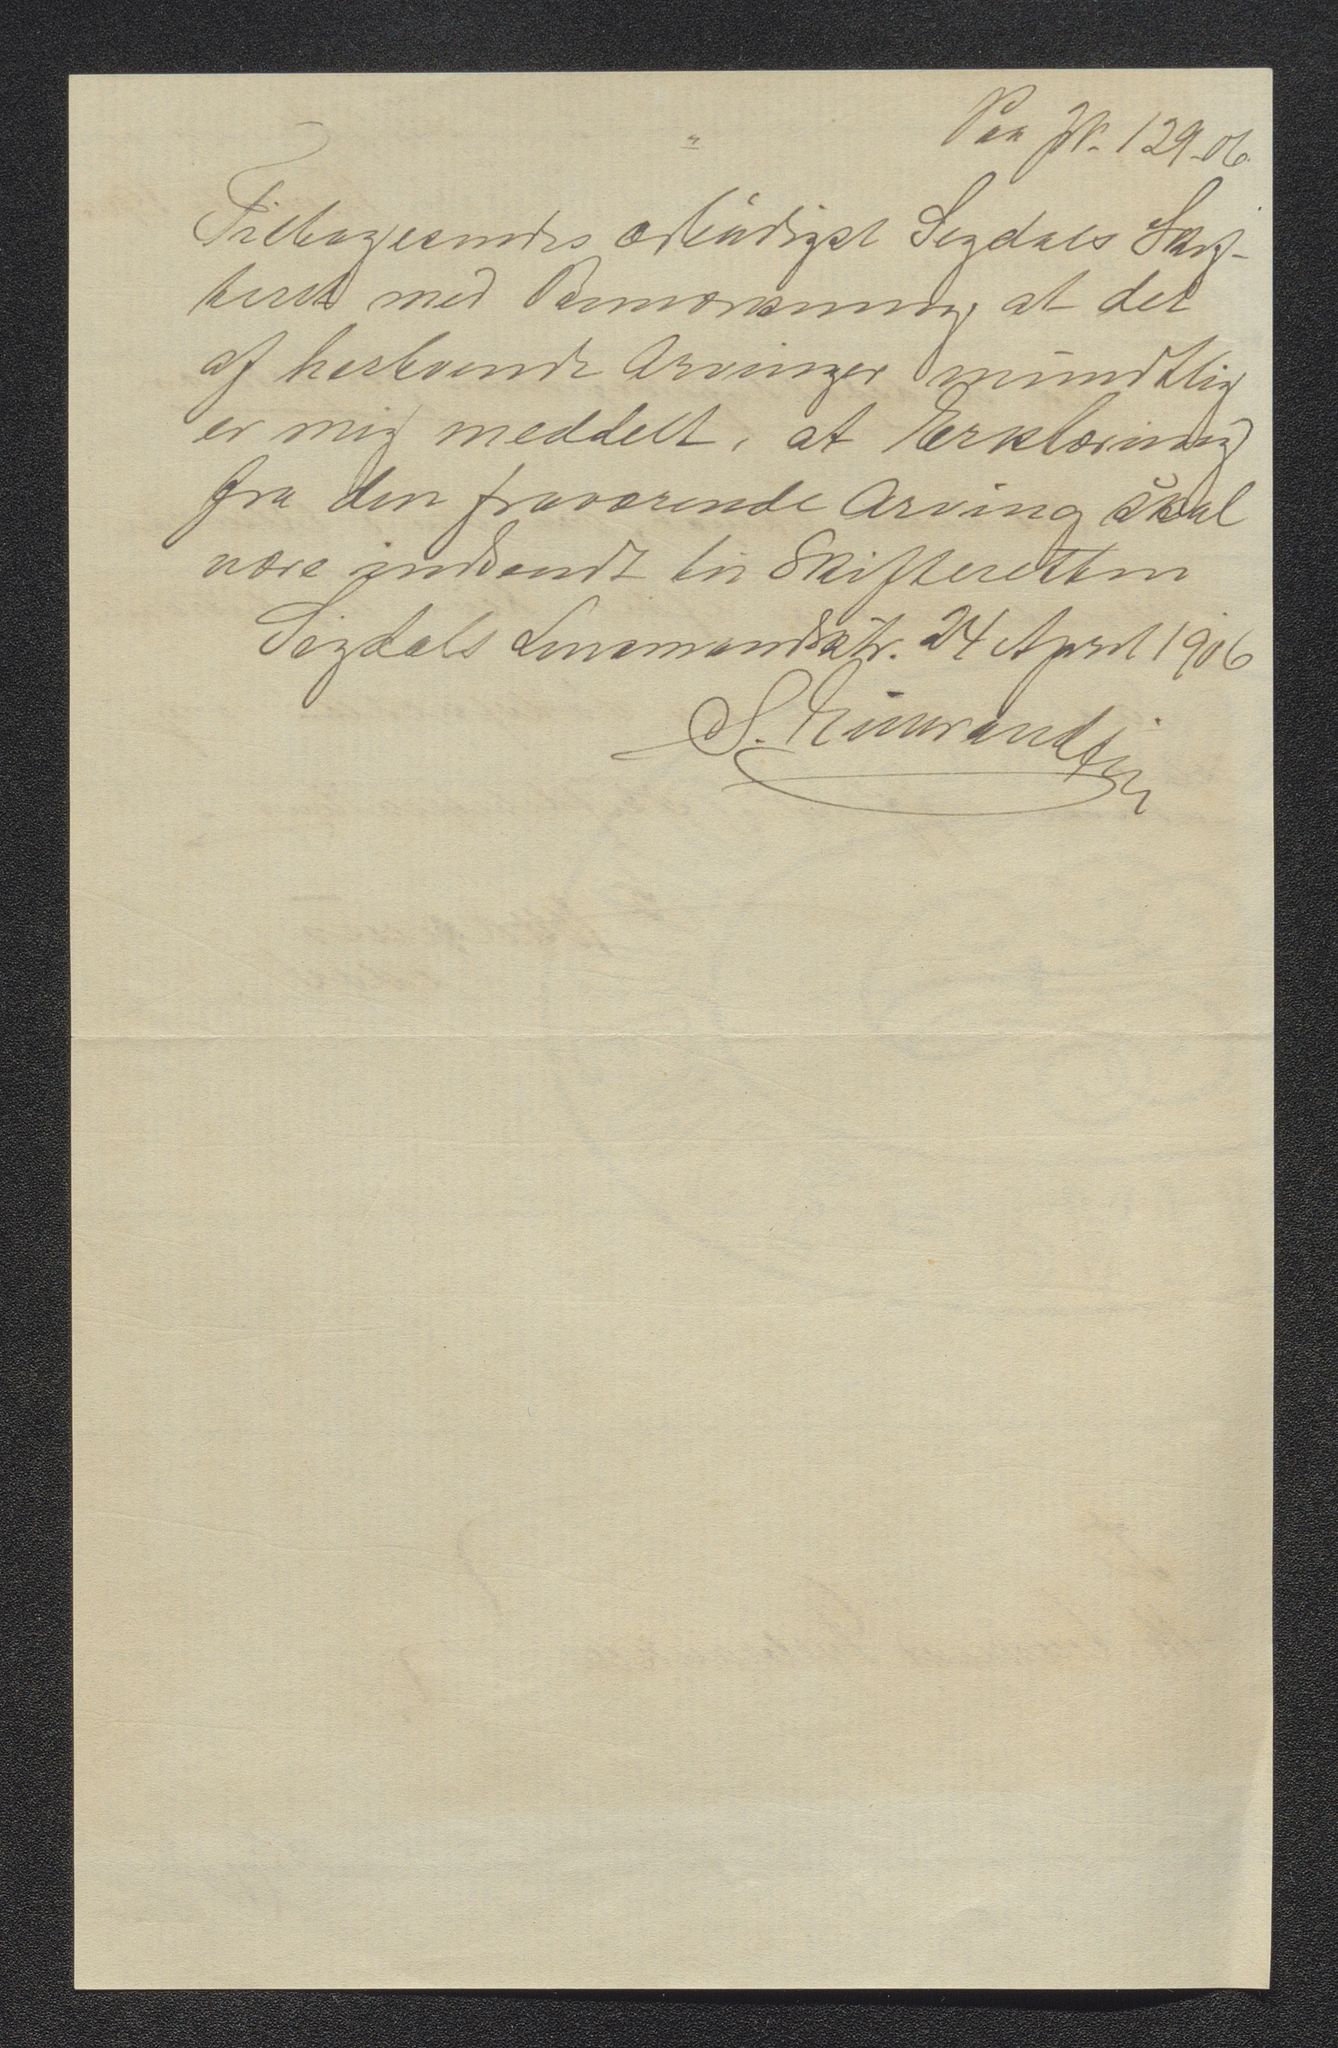 Paa JN. 129-06.
Tilbagesendes ærbødigst Sigdals Skif-
teret med Bemærkning, at det
af herboende Arvinger mundtlig
er mig meddelt, at Erklæring
fra den fraværende Arving skal
være indsendt til Skifteretten
Sigdals Lensmandsktr. 24 April 1906
S.